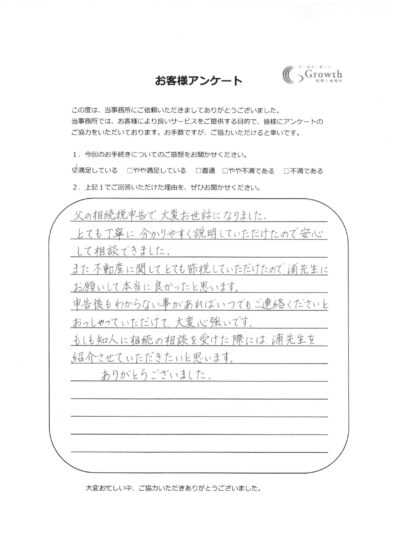 Growth
お客様アンケート
この度は、当事務所にご依頼いただきましてありがとうございました。
当事務所では、お客様により良いサービスをご提供する目的で、皆様にアンケートの
ご協力をいただいております。お手数ですが、ご協力いただけると幸いです。
1．今回のお手続きについてのご感想をお聞かせください。
☑満足している □やや満足している □普通 □やや不満である □不満である
2．上記1でご回答いただけた理由を、ぜひお聞かせください。
父の相続税申告で大変お世話になりました。
とても丁寧に分かりやすく説明していただけたので安心
して相談できました。
また不動産に関してとても節税していただけたので浦先生に
お願いして本当に良かったと思います。
申告後もわからない事があればいつでもご連絡くださいと
おっしゃっていただけて、大変心強いです。
もしも知人に相続の相談を受けた際には浦先生を
紹介させていただきたいと思います。
ありがとうございました。
大変お忙しい中、ご協力いただきありがとうございました。